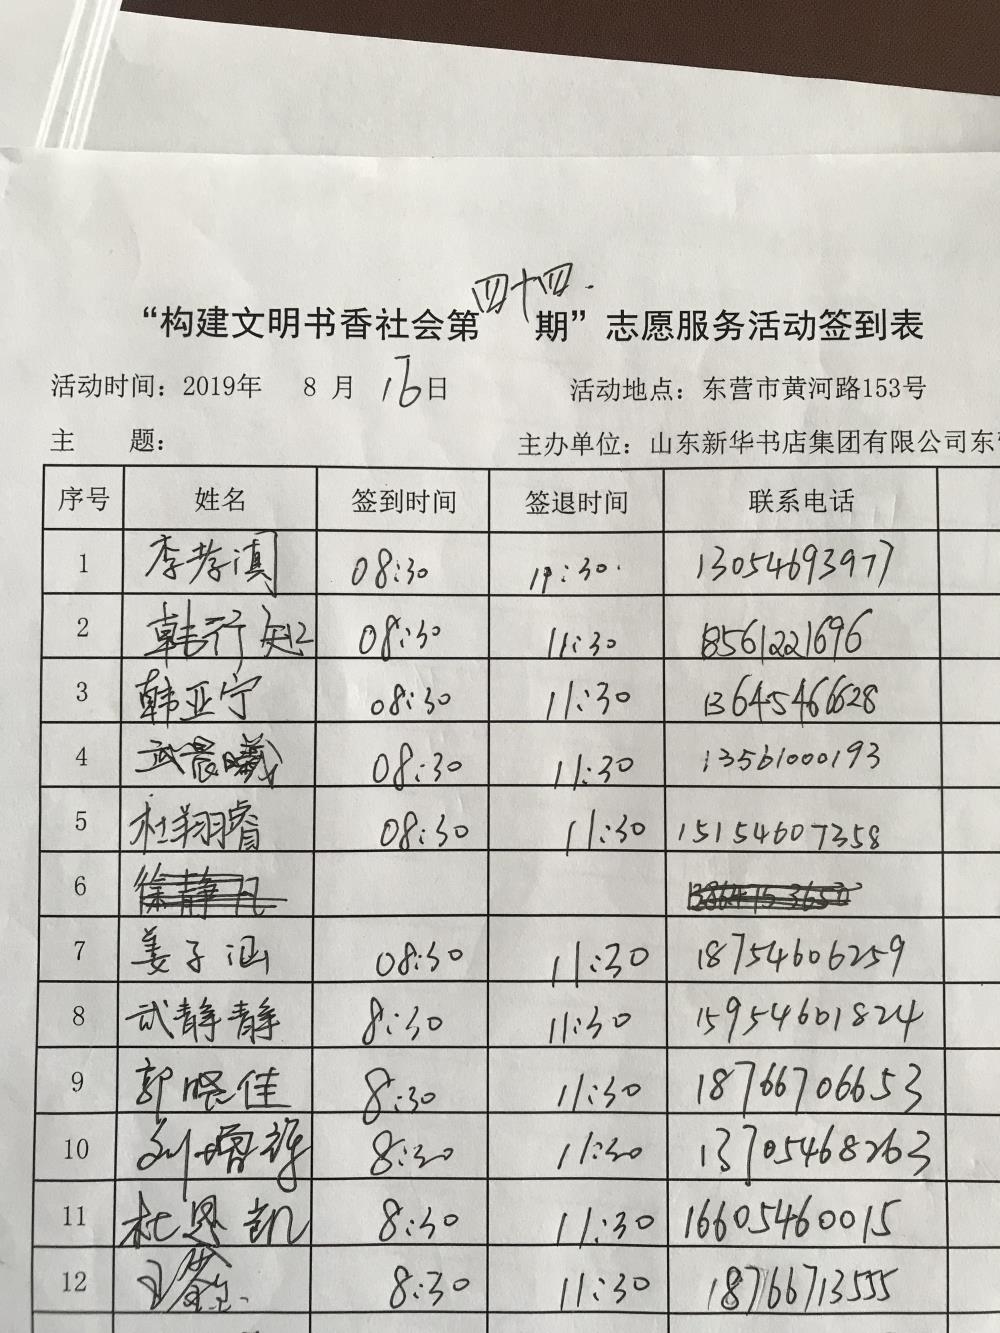 四十四.
“构建文明书香社会第 期”志愿服务活动签到表
活动时间：2019年 8 月 16日 活动地点：东营市黄河路153号
主 题： 主办单位：山东新华书店集团有限公司东
序号 姓名 签到时间 签退时间 联系电话
1 李孝滇 08:30 11:30. 13054693977
2 韩行知 08:30 11:30 18561221696
3 韩亚宁 08:30 11:30 13645466628
4 武晨曦 08:30 11:30 13561000193
5 杜翔睿 08:30 11:30 15154607358
6 徐静凡
7 姜子涵 08:30 11:30 18754606259
8 武静静 8:30 11:30 15954601824
9 郭晓佳 8:30 11:30 18766706653
10 8:30 11:30 13705468263
11 杜恩凯 8:30 11:30 16605460015
12 8:30 11:30 18766713555